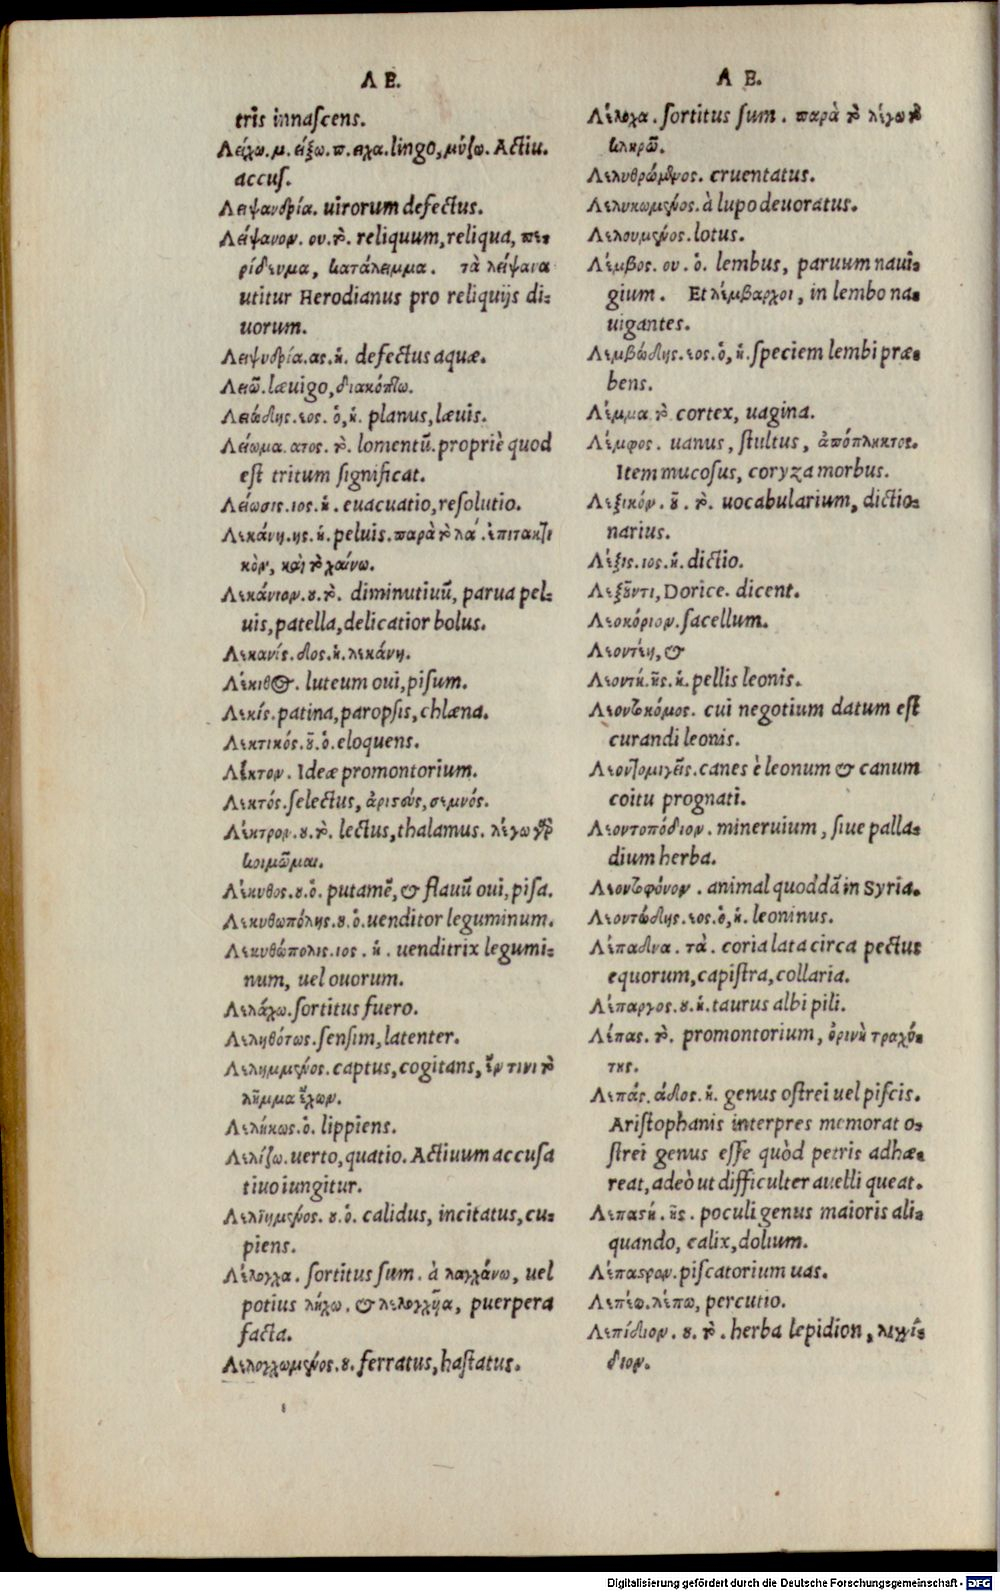 Λ Ε.
tris innaſcens.
Λείχω. μ. είξω. π. ειχα. lingo, μύζω. Actiu.
accuſ.
Λειψανδρία. uirorum defectus.
Λείψανον. ου. τὸ. reliquum, reliqua, πε-
ρίδευμα, κατάλειμμα. τὰ λείψανα
utitur Herodianus pro reliquijs di-
uorum.
Λειψυδρία. ας. ἡ. defectus aquæ.
Λειῶ. læuigo, διακόπτω.
Λειώδης. εος. ὁ, ἡ. planus, læuis.
Λείωμα. ατος. τὸ. lomentũ. propriè quod
eſt tritum ſignificat.
Λείωσις. ιος. ἡ. euacuatio, reſolutio.
Λεκάνη. ης. ἡ. peluis. παρὰ τὸ λα ἐπιτακτι
κὸν, καὶ τὸ χαίνω.
Λεκάνιον. ου. τὸ. diminutiuũ, parua pel-
uis, patella, delicatior bolus.
Λεκανίς. δος. ἡ. λεκάνη.
Λέκιθος. luteum oui, piſum.
Λεκίς. patina, paropſis, chlæna.
Λεκτικός. οῦ. ὁ. eloquens.
Λεκτον. Ideæ promontorium.
Λεκτός. ſelectus, ἀριστός, σεμνός.
Λέκτρον. ου. τὸ. lectus, thalamus. λέγω γὰρ
κοιμῶμαι.
Λέκυθος. ου. ὁ. putamẽ, & flauũ oui, piſa.
Λεκυθωπόλης. ου. ὁ. uenditor leguminum.
Λεκυθώπολις. ιος. ἡ. uenditrix legumi-
num, uel ouorum.
Λελάχω. ſortitus fuero.
Λεληθότως. ſenſim, latenter.
Λελημμένος. captus, cogitans, ἔν τινι τὸ
λῆμμα ἔχων.
Λελήκως. ὁ. lippiens.
Λελίζω. uerto, quatio. Actiuum accuſa
tiuo iungitur.
Λελιημένος. ου. ὁ. calidus, incitatus, cu-
piens.
Λέλογχα. ſortitus ſum. à λαγχάνω, uel
potius λήχω. & λελογχῆα, puerpera
facta.
Λελογχωμένος. ου. ferratus, haſtatus.
Λ Ε.
Λέλοχα. ſortitus ſum. παρὰ τὸ λέγω τὸ
κληρῶ.
Λελυθρώμενος. cruentatus.
Λελυκωμένος. à lupo deuoratus.
Λελουμένος. lotus.
Λέμβος. ου. ὁ. lembus, paruum naui-
gium. Et λέμβαρχοι, in lembo na-
uigantes.
Λεμβώδης. εος. ὁ, ἡ. ſpeciem lembi præ-
bens.
Λέμμα τὸ cortex, uagina.
Λέμφος. uanus, ſtultus, ἀπόπληκτος.
Item mucoſus, coryza morbus.
Λεξικόν. οῦ. τὸ. uocabularium, dictio-
narius.
Λέξις. ιος. ἡ. dictio.
Λεξοῦντι, Dorice. dicent.
Λεοκόριον. ſacellum.
Λεοντέη, &
Λεοντή. ῆς. ἡ. pellis leonis.
Λεοντοκόμος. cui negotium datum eſt
curandi leonis.
Λεοντομιγεῖς. canes è leonum & canum
coitu prognati.
Λεοντοπόδιον. mineruium, ſiue palla-
dium herba.
Λεοντοφόνον. animal quoddã in Syria.
Λεοντώδης. εος. ὁ, ἡ. leoninus.
Λέπαδνα. τὰ. coria lata circa pectus
equorum, capiſtra, collaria.
Λέπαργος. ου. ἡ. taurus albi pili.
Λέπας. τὸ. promontorium, ὀρινὴ τραχύ-
της.
Λεπάς. άδος. ἡ. genus oſtrei uel piſcis.
Ariſtophanis interpres memorat o-
ſtrei genus eſſe quòd petris adhæ-
reat, adeò ut difficulter auelli queat.
Λεπαστή. ῆς. poculi genus maioris ali-
quando, calix, dolium.
Λέπαστρον. piſcatorium uas.
Λεπέω. λέπω, percutio.
Λεπίδιον. ου. τὸ. herba lepidion, λιγγί-
διον.
Digitalisierung gefördert durch die Deutsche Forschungsgemeinschaft - DFG